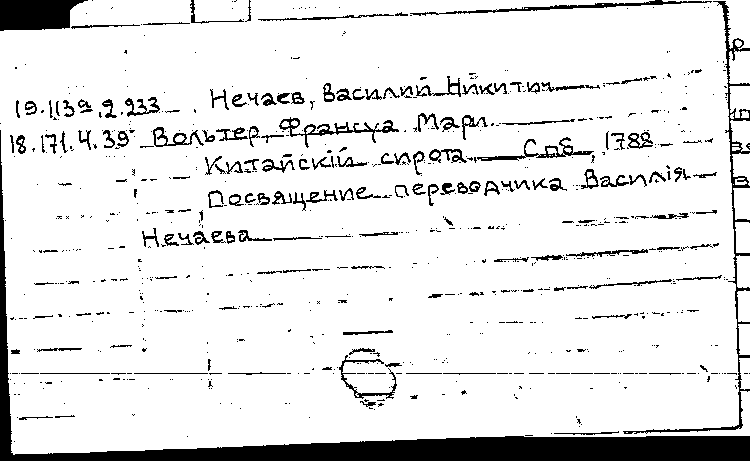 19.113a.2.233 Нечаев, Василий Никитич
18.171.4.39 Вольтер, Франсуа Мари.
Китайскiй сирота Спб, 1788
Посвящение переводчика Василiя
Нечаева